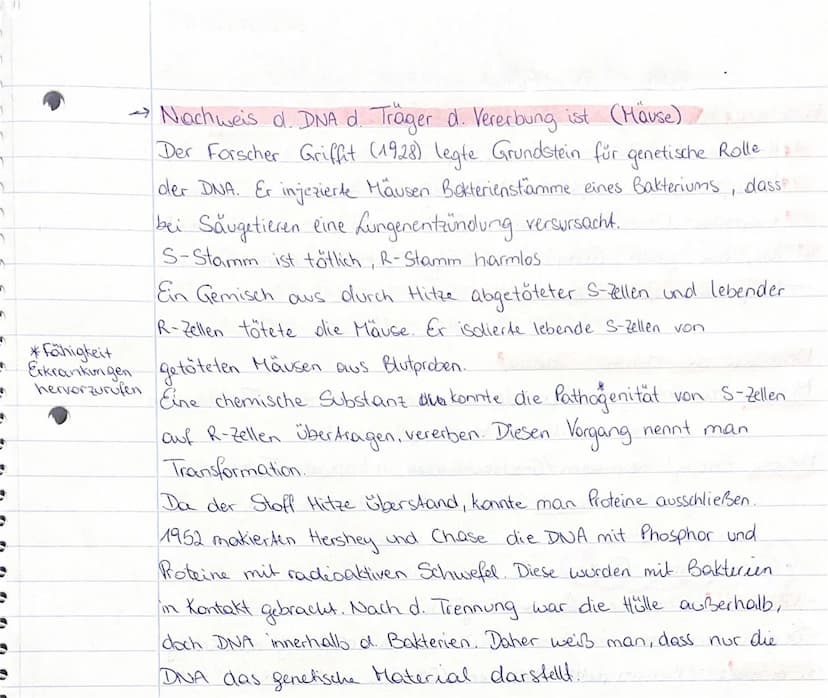 → Nachweis d. DNA d. Träger d. Vererbung ist (Mäuse)
Der Forscher Griffit (1928) legte Grundstein für genetische Rolle
der DNA. Er injezierte Mäusen Bakterienstämme eines Bakteriums, dass
bei Säugetieren eine Lungenentzündung versursacht.
S-Stamm ist tötlich, R-Stamm harmlos
Ein Gemisch aus durch Hitze abgetöteter S-Zellen und lebender
R-Zellen tötete die Mäuse. Er isolierte lebende S-Zellen von
getöteten Mäusen aus Blutproben.
*Fähigkeit
Erkrankungen
hervorzurufen
Eine chemische Substanz konnte die Pathogenität* von S-Zellen
auf R-Zellen übertragen, vererben. Diesen Vorgang nennt man
Transformation.
Da der Stoff Hitze überstand, konnte man Proteine ausschließen.
1952 makierten Hershey und Chase die DNA mit Phosphor und
Proteine mit radioaktiven Schwefel. Diese wurden mit Bakterien
in Kontakt gebracht. Nach d. Trennung war die Hülle außerhalb,
doch DNA innerhalb d. Bakterien. Daher weiß man, dass nur die
DNA das genetische Material darstellt.